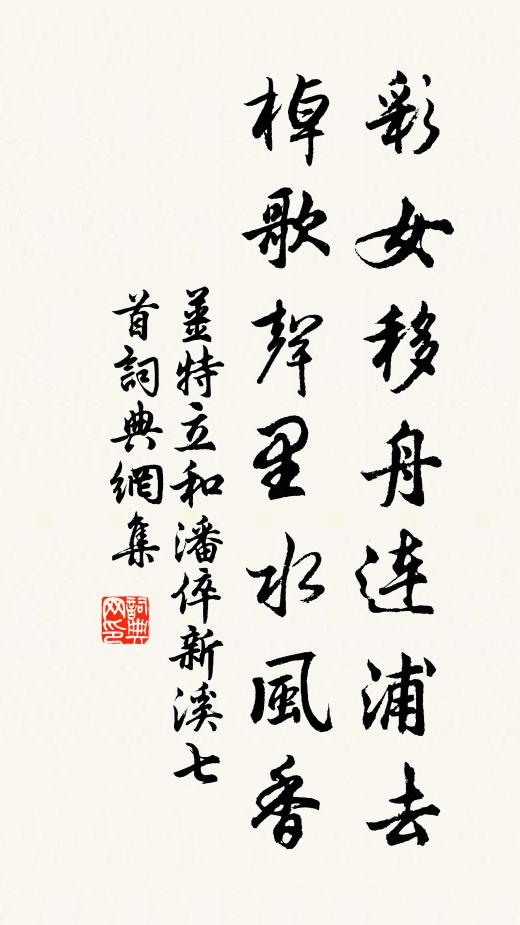 彩女移舟連浦去
棹歌聲里水風香
薑特立和潘倅新溪七
首詞典網集
詞典
网印